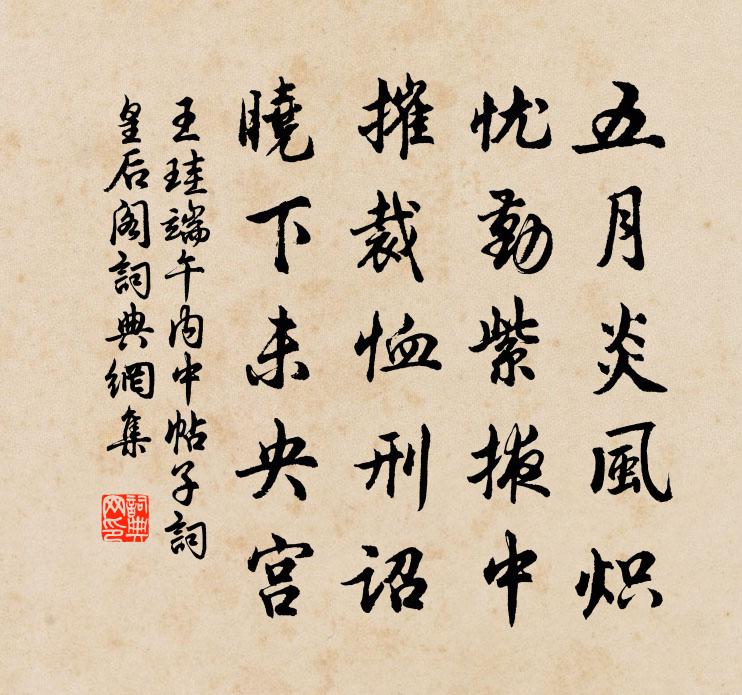 五月炎風炽
忧勤紫掖中
摧裁恤刑詔
曉下未央宫
王珪端午内中帖子詞
皇后閣詞典網集
詞典网印